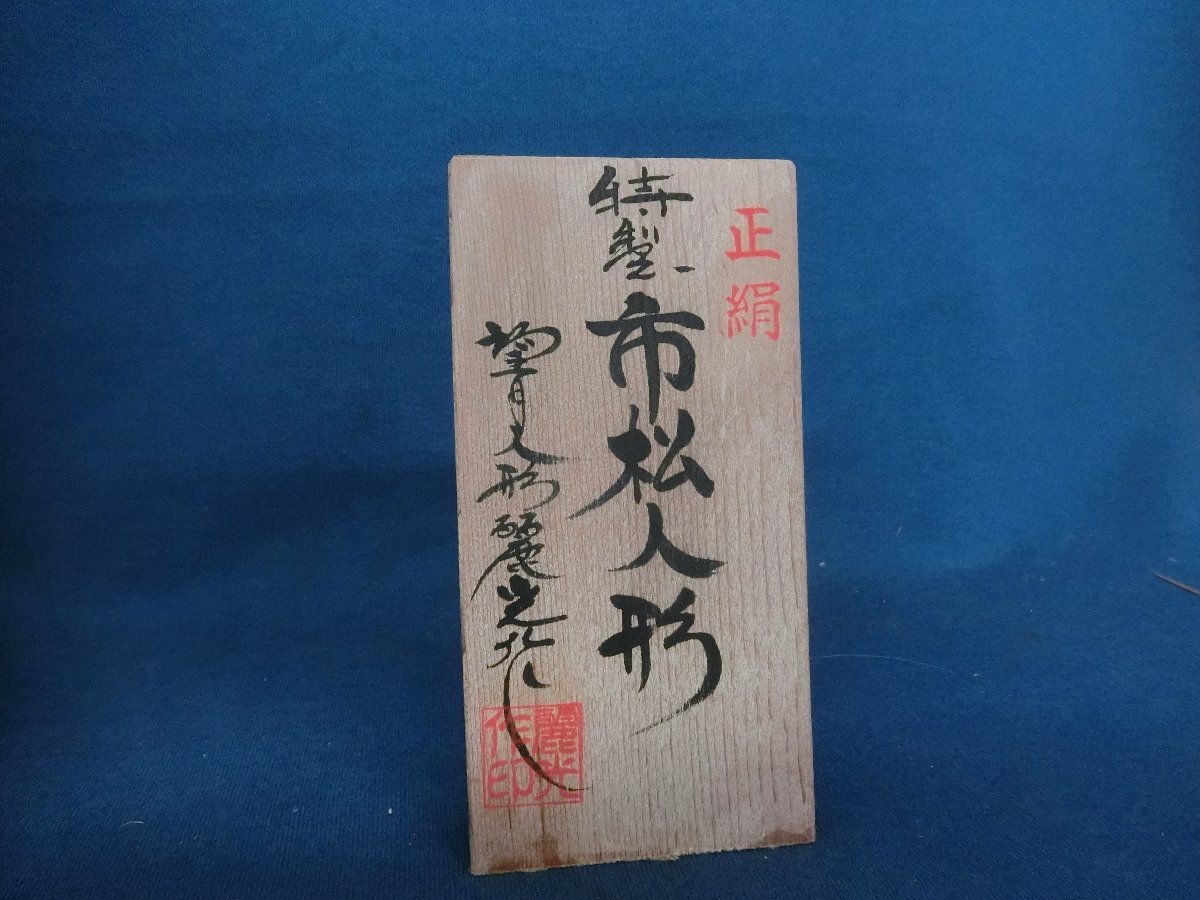 正絹
特製
市松人形
望月人形麗光作
麗光
作印